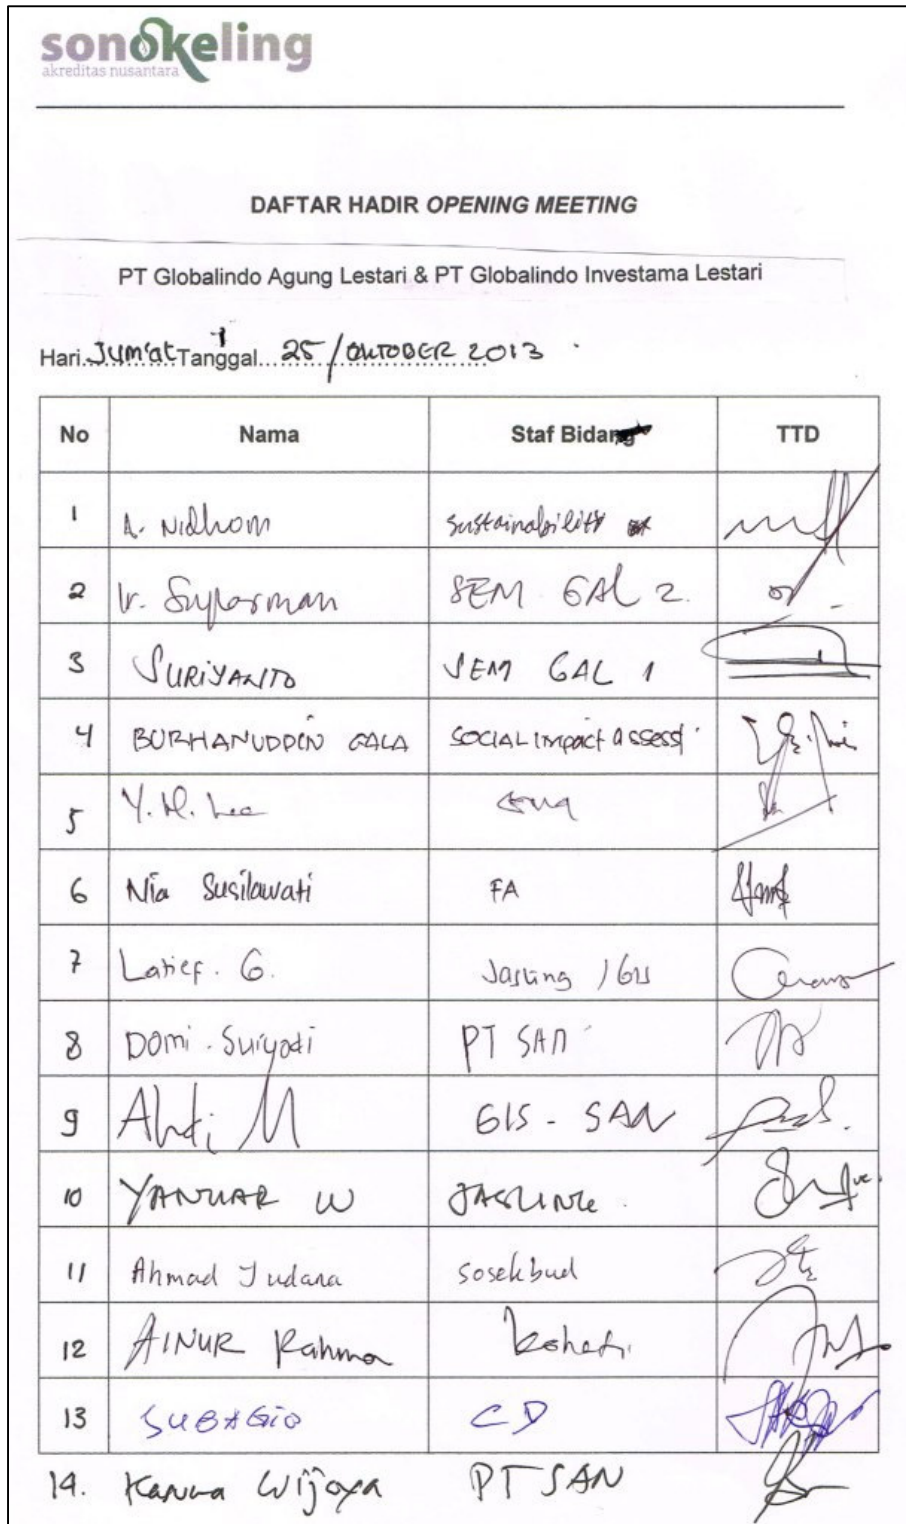 sonokeling
akreditas nusantara
DAFTAR HADIR OPENING MEETING
PT Globalindo Agung Lestari & PT Globalindo Investama Lestari
Hari..Jum'at Tanggal...25 / OKTOBER 2013
No Nama Staf Bidang TTD
1 A. Nidhom Sustainability
2 Ir. Suparman SEM GAL 2.
3 SURIYANTO SEM GAL 1
4 BURHANUDDIN GALA SOCIAL impact assess
5 Y. H. Lee
6 Nia Susilawati FA
7 Latief. G. Jasling / GIS
8 Domi. Suryadi PT SAN
9 Abdi M GIS - SAN
10 YANUAR W JASLING.
11 Ahmad Yudana sosekbud
12 AINUR Rahma kehati
13 SUBAGIO CD
14. Karuna Wijaya PT SAN